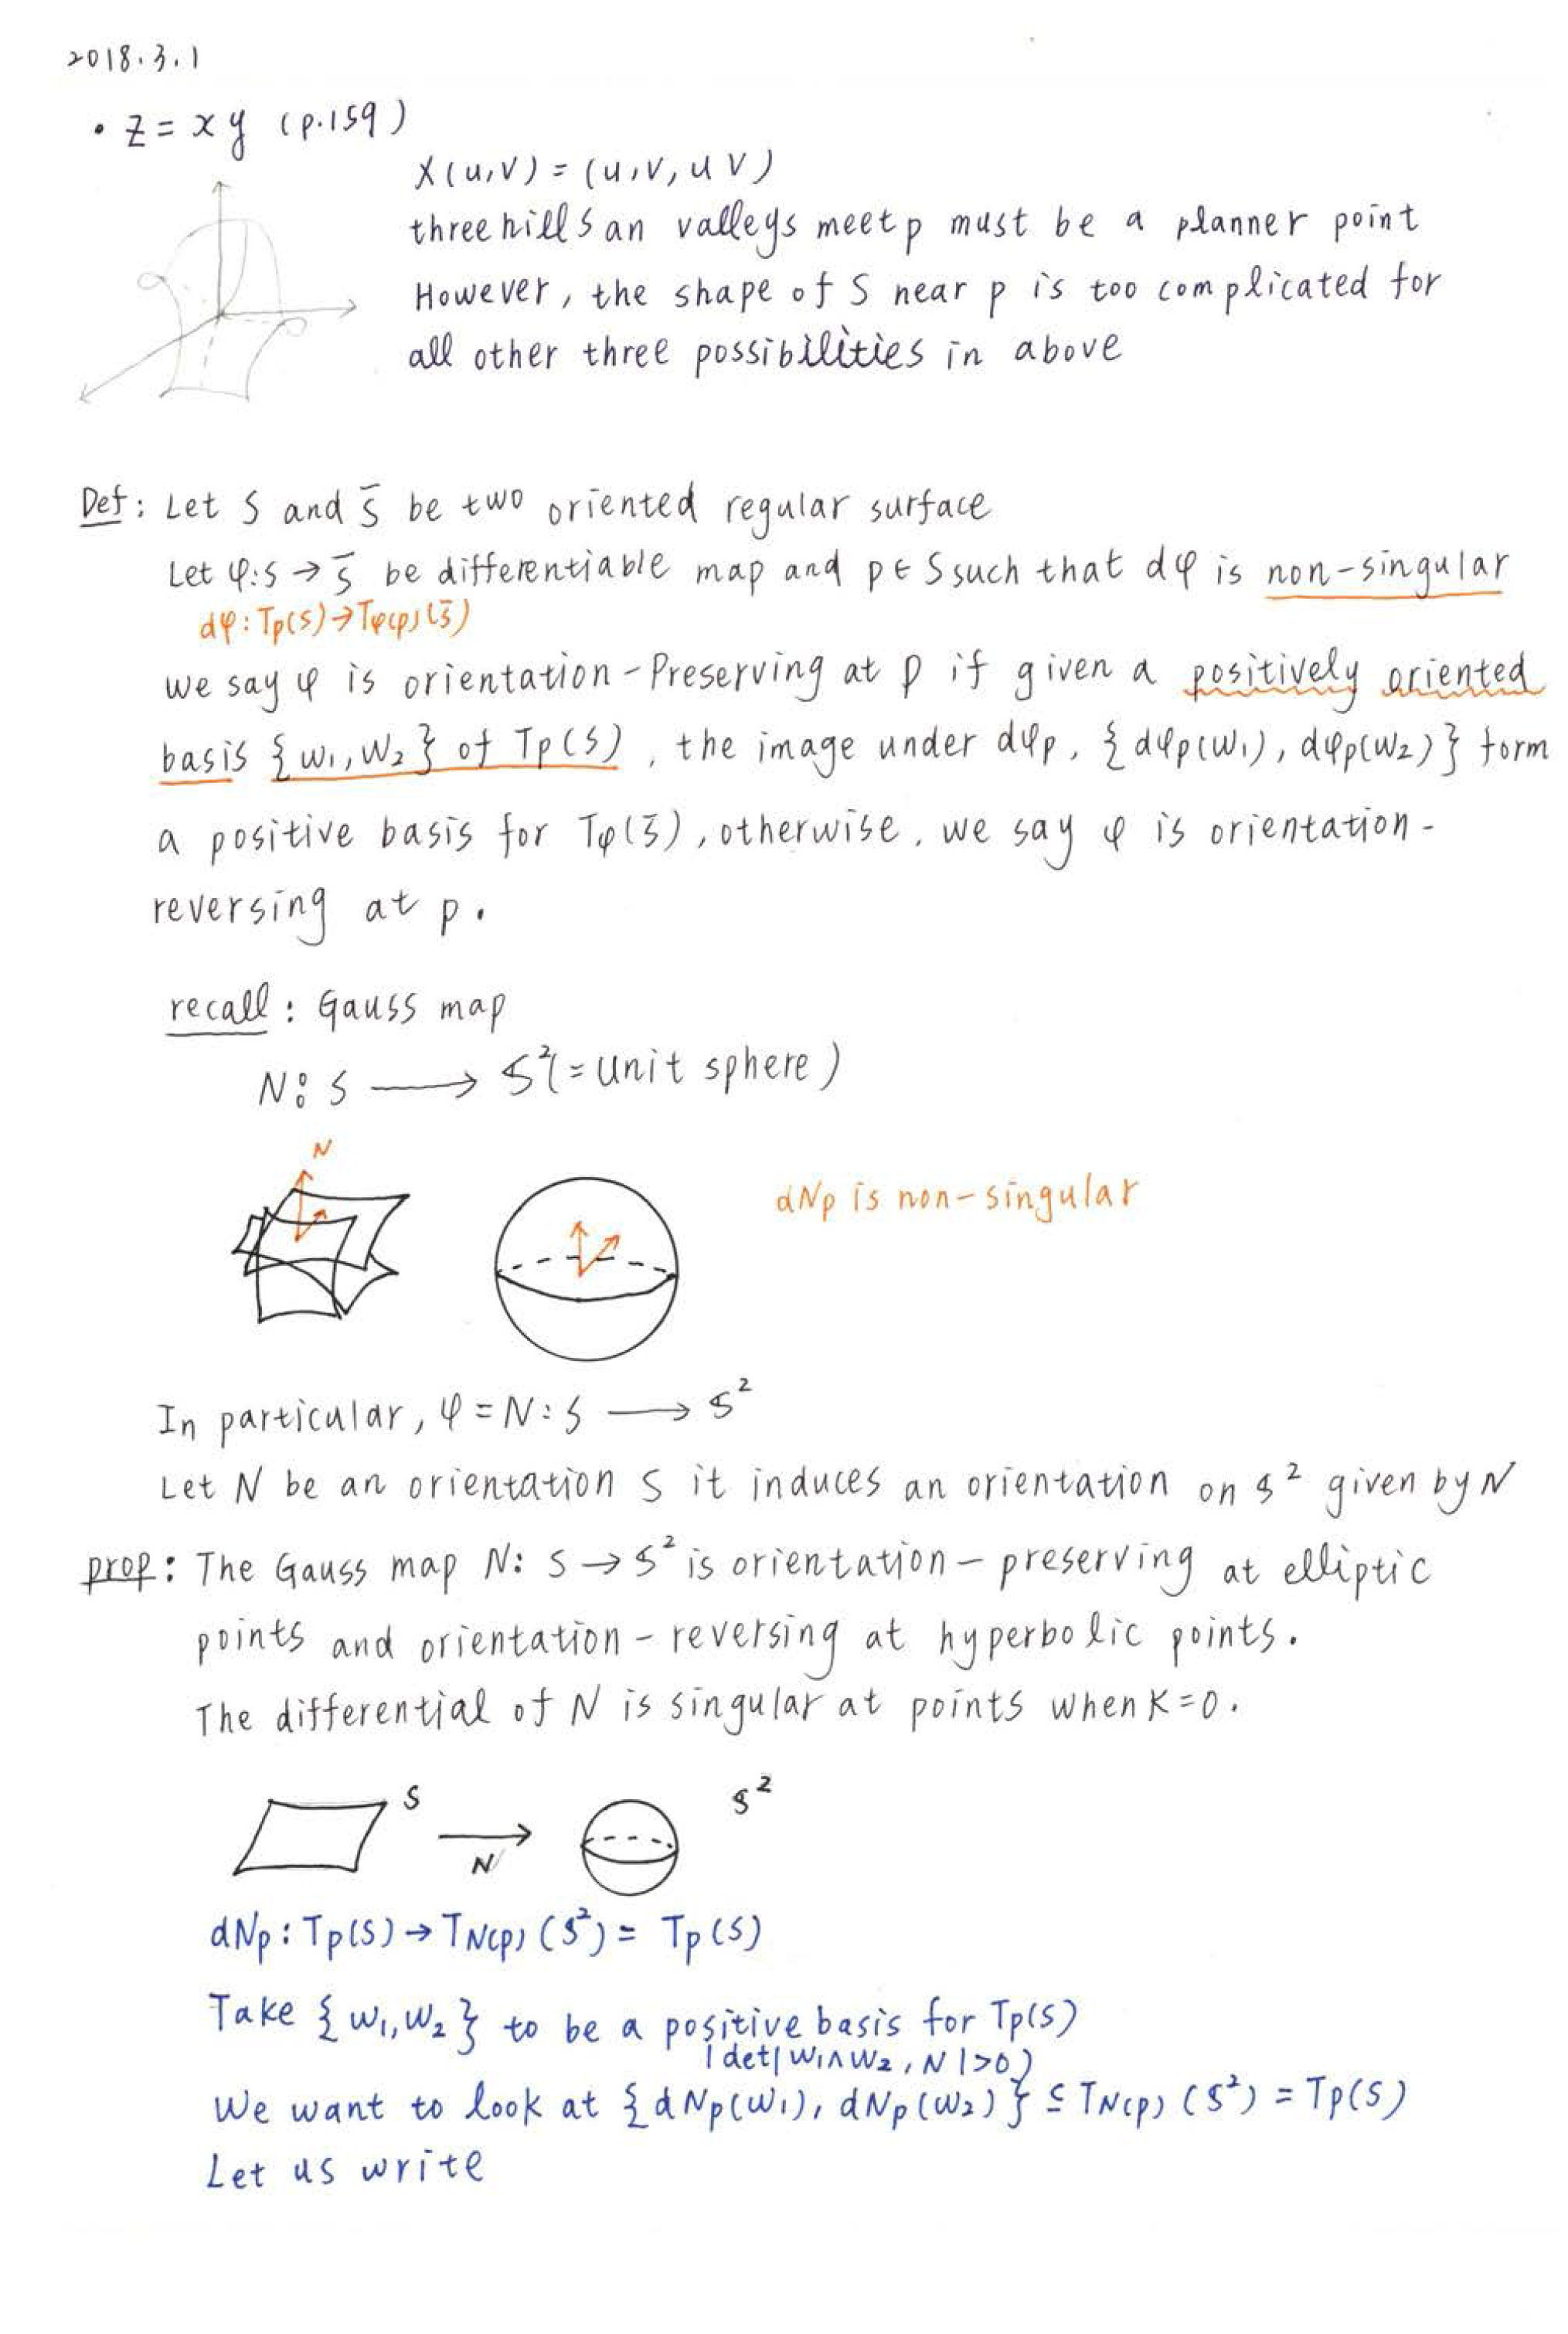 2018.3.1
• z = xy (p.159)
X(u,v) = (u,v,uv)
three hills an valleys meet p must be a planner point
However, the shape of S near p is too complicated for
all other three possibilities in above
Def: Let S and S̄ be two oriented regular surface
Let φ:S → S̄ be differentiable map and p∈S such that dφ is non-singular
dφ: Tp(S)→Tφ(p)(S̄)
we say φ is orientation-Preserving at p if given a positively oriented
basis {w₁,W₂} of Tp(S), the image under dφp, {dφp(w₁), dφp(w₂)} form
a positive basis for Tφ(S̄), otherwise, we say φ is orientation-
reversing at p.
recall: Gauss map
N: S ⟶ S²(=unit sphere)
N
dNp is non-singular
In particular, φ=N:S ⟶ S²
Let N be an orientation S it induces an orientation on S² given by N
prop: The Gauss map N: S → S² is orientation-preserving at elliptic
points and orientation-reversing at hyperbolic points.
The differential of N is singular at points when K=0.
S
S²
N
dNp: Tp(S)→TN(p)(S²) = Tp(S)
Take {w₁,w₂} to be a positive basis for Tp(S)
(det|w₁∧w₂, N|>0)
We want to look at {dNp(w₁), dNp(w₂)} ⊆ TN(p)(S²) = Tp(S)
Let us write